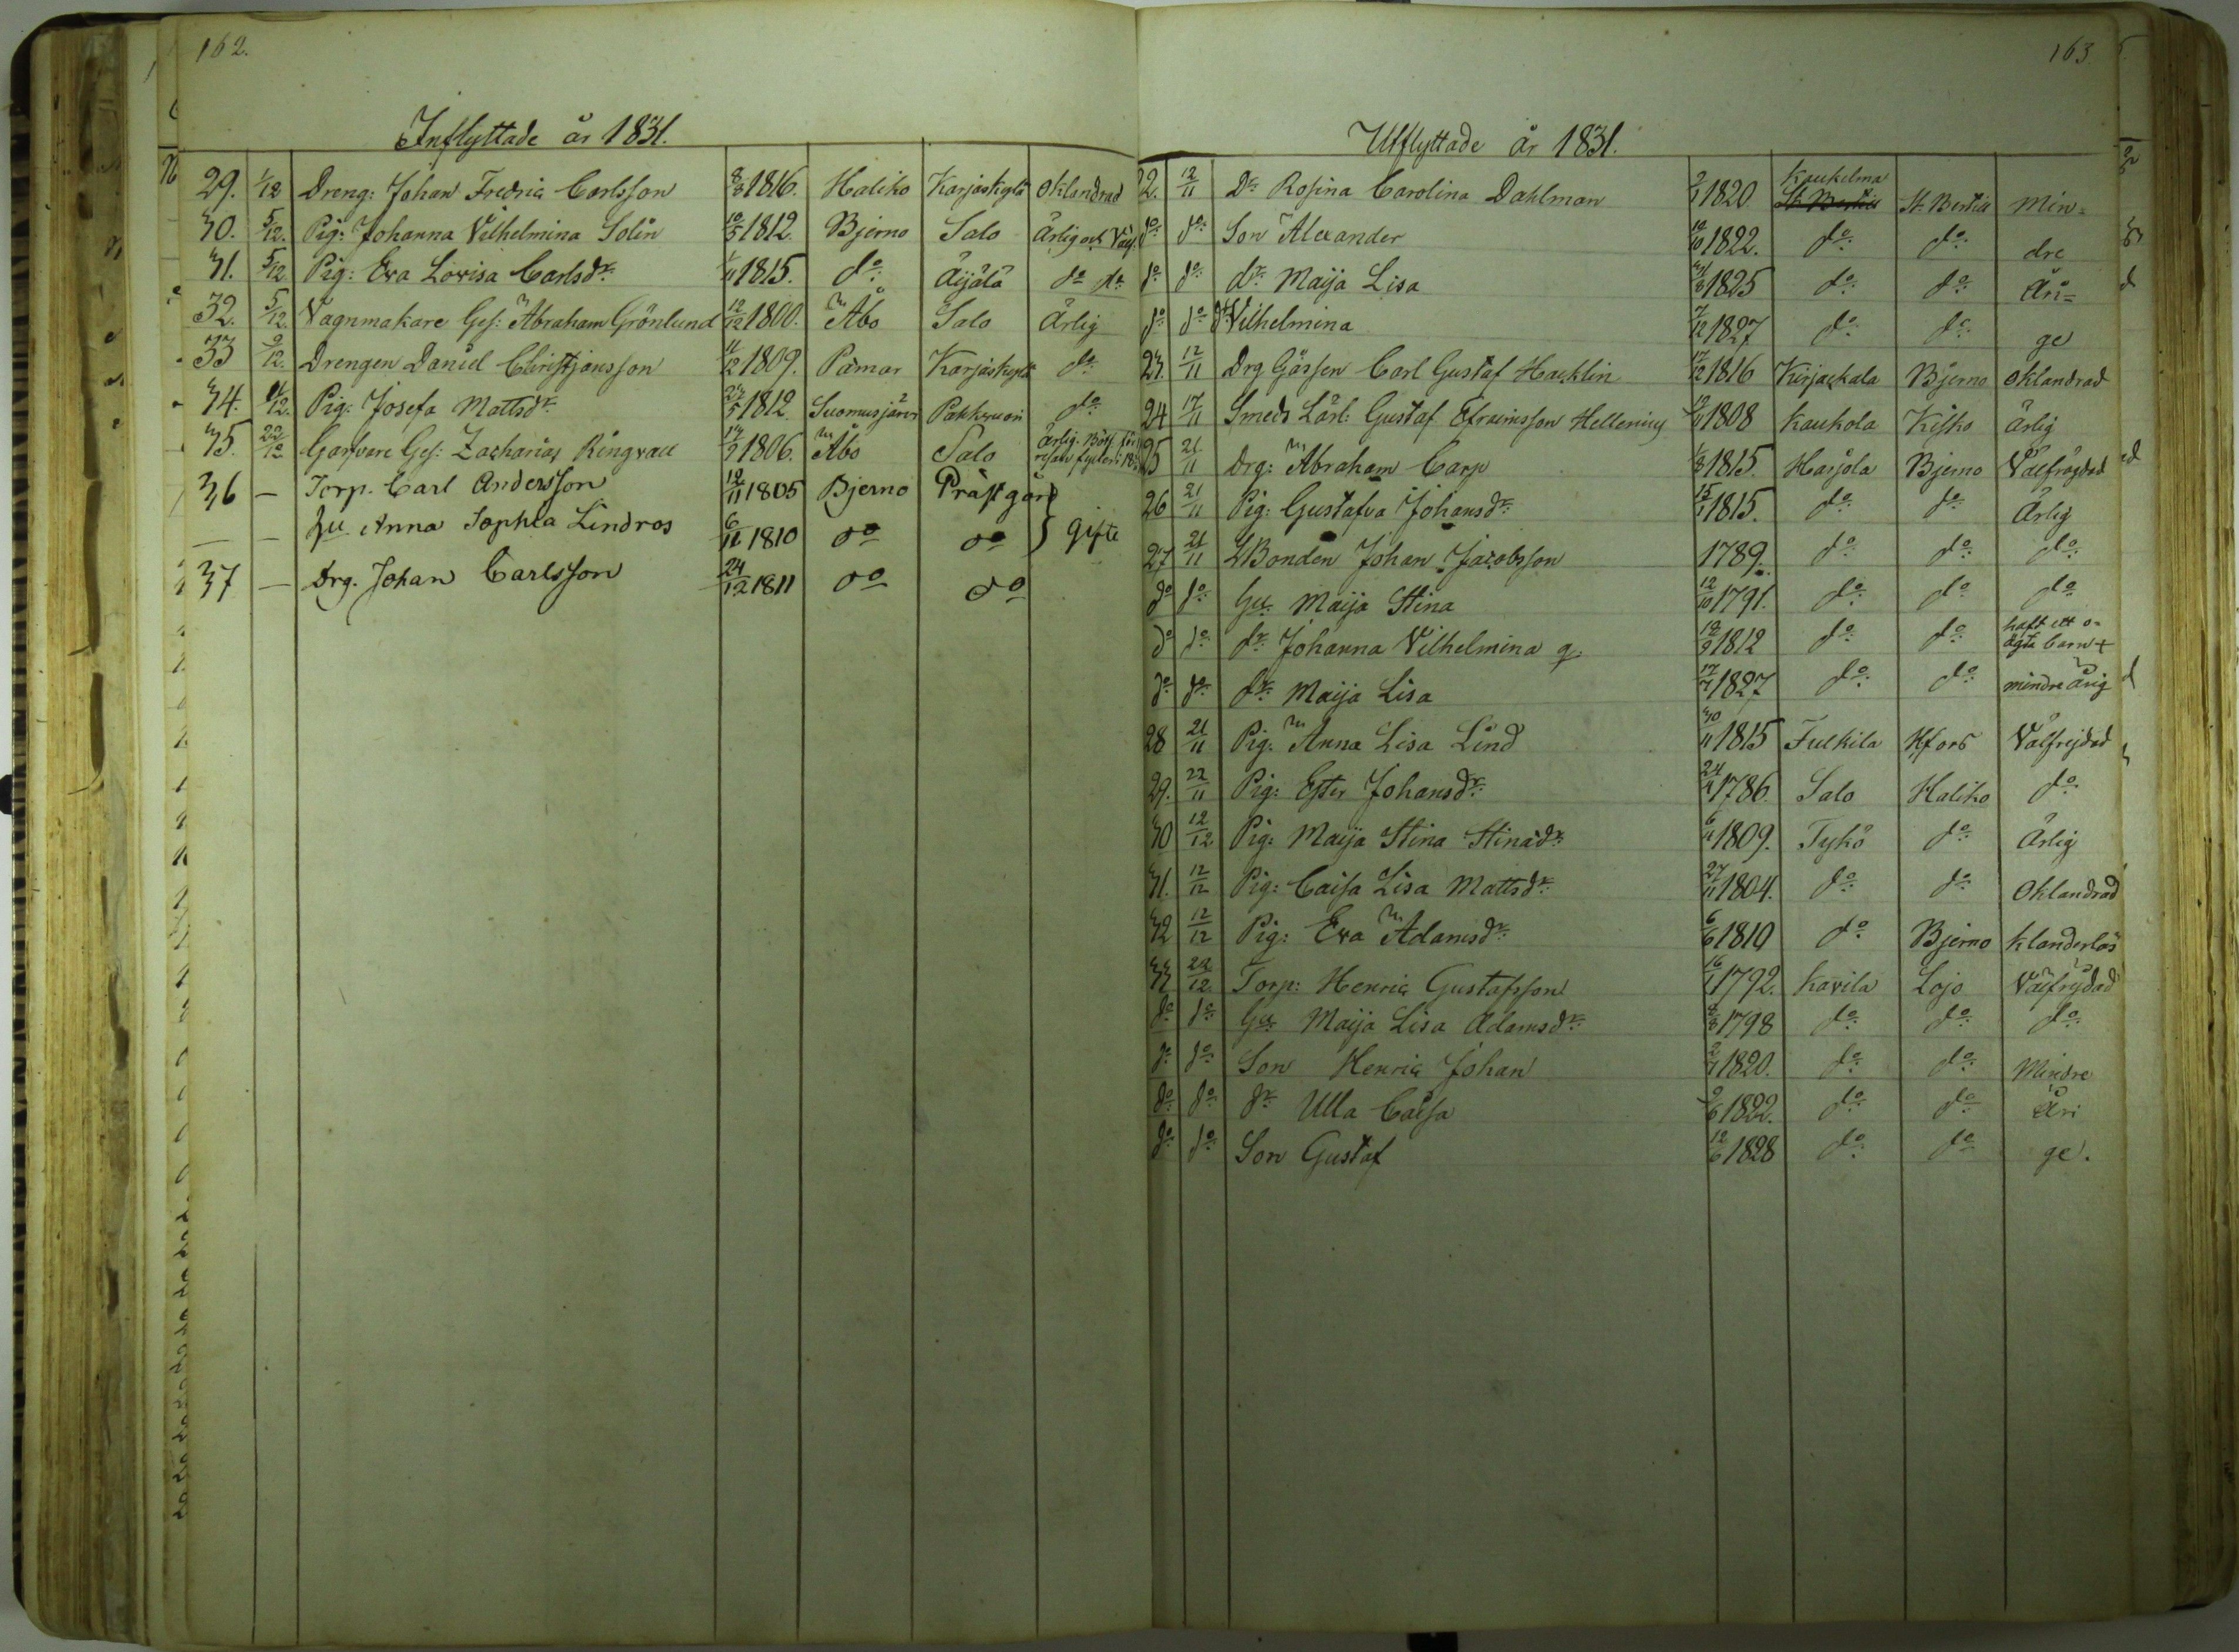 162.
Inflyttade år 1831.
29. 1/12 Dreng: Johan Fredric Carlsson 8/3 1816. Haliko Karjaskylä Oklandrad
30. 5/12. Pig: Johanna Vilhelmina Solin 10/5 1812. Bjerno Salo Ärlig och Välf.
31. 5/12 Pig: Eva Lovisa Carlsdr 1/11 1815. do Äijälä do do
32. 5/12. Vagnmakare Ges: Abraham Grönlund 12/12 1800. Åbo Salo Ärlig
33 9/12. Drengen Daniel Christjansson 11/12 1809. Pämar Karjaskylä do
34. 12. Pig: Josefa Mattsdr 1812 Suomusjärvi Pakkavuori do
35. 22/12 Garfvare Ges: Zacharias Ringvall 1806. Åbo Salo Ärlig.
36 — Torp. Carl Andersson 12/11 1805 Bjerno Prästgård
— — Hu Anna Sophia Lindros 6/11 1810 do do } gifte
37 — Drg. Johan Carlsson 24/12 1811 do do
163
Utflyttade år 1831.
22. 12/11 Dr Rosina Carolina Dahlman 2/1 1820 Kaukelma St. Bertill St. Bertill Min=
do do Son Alexander 12/10 1822. do do dre
do do dr Maija Lisa 1825 do do Åri=
do do dr Vilhelmina 7/12 1827 do do ge
23. 12/11 Drg Gåssen Carl Gustaf Hacklin 17/12 1816 Kirjackala Bjerno Oklandrad
24 17/11 Smeds Lärl: Gustaf Efraimsson Hellenius 1808 Kaukola Kisko Ärlig
25 21/11 Drg: Abraham Carp 1/8 1815. Harjola Bjerno Välfrägdad
26 21/11 Pig: Gustafva Johansdr 15/1 1815. do do Ärlig
27 21/11 LBonden Johan Jacobsson 1789. do do do
do do Hu Maija Stina 12/10 1791. do do do
do do dr Johanna Vilhelmina q. 18/9 1812 do do haft ett o- ägta barn +
do do dr Maija Lisa 17/7 1827 do do mindre årig
28 21/11 Pig: Anna Lisa Lind 30/11 1815 Fulkila Hfors Välfrejdad
29. 22/11 Pig: Ester Johansdr 1786. Salo Haliko do
30 12/12 Pig: Maija Stina Stinadr 1809. Tykö do Ärlig
31. 12/12 Pig: Caisa Lisa Mattsdr 27/11 1804. do do Oklandrad
32 12/12 Pig: Eva Adamsdr 6/6 1810 do Bjerno klanderlös
33 22/12. Torp: Henric Gustafsson 16/1 1792. Kavila Lojo Välfrejdad
do do Hu Maija Lisa Adamsdr 1798 do do do
do do Son Henric Johan 2/7 1820. do do Mindre
do do dr Ulla Caisa 9/6 1822. do do Åri
do do Son Gustaf 12/6 1828 do do ge.